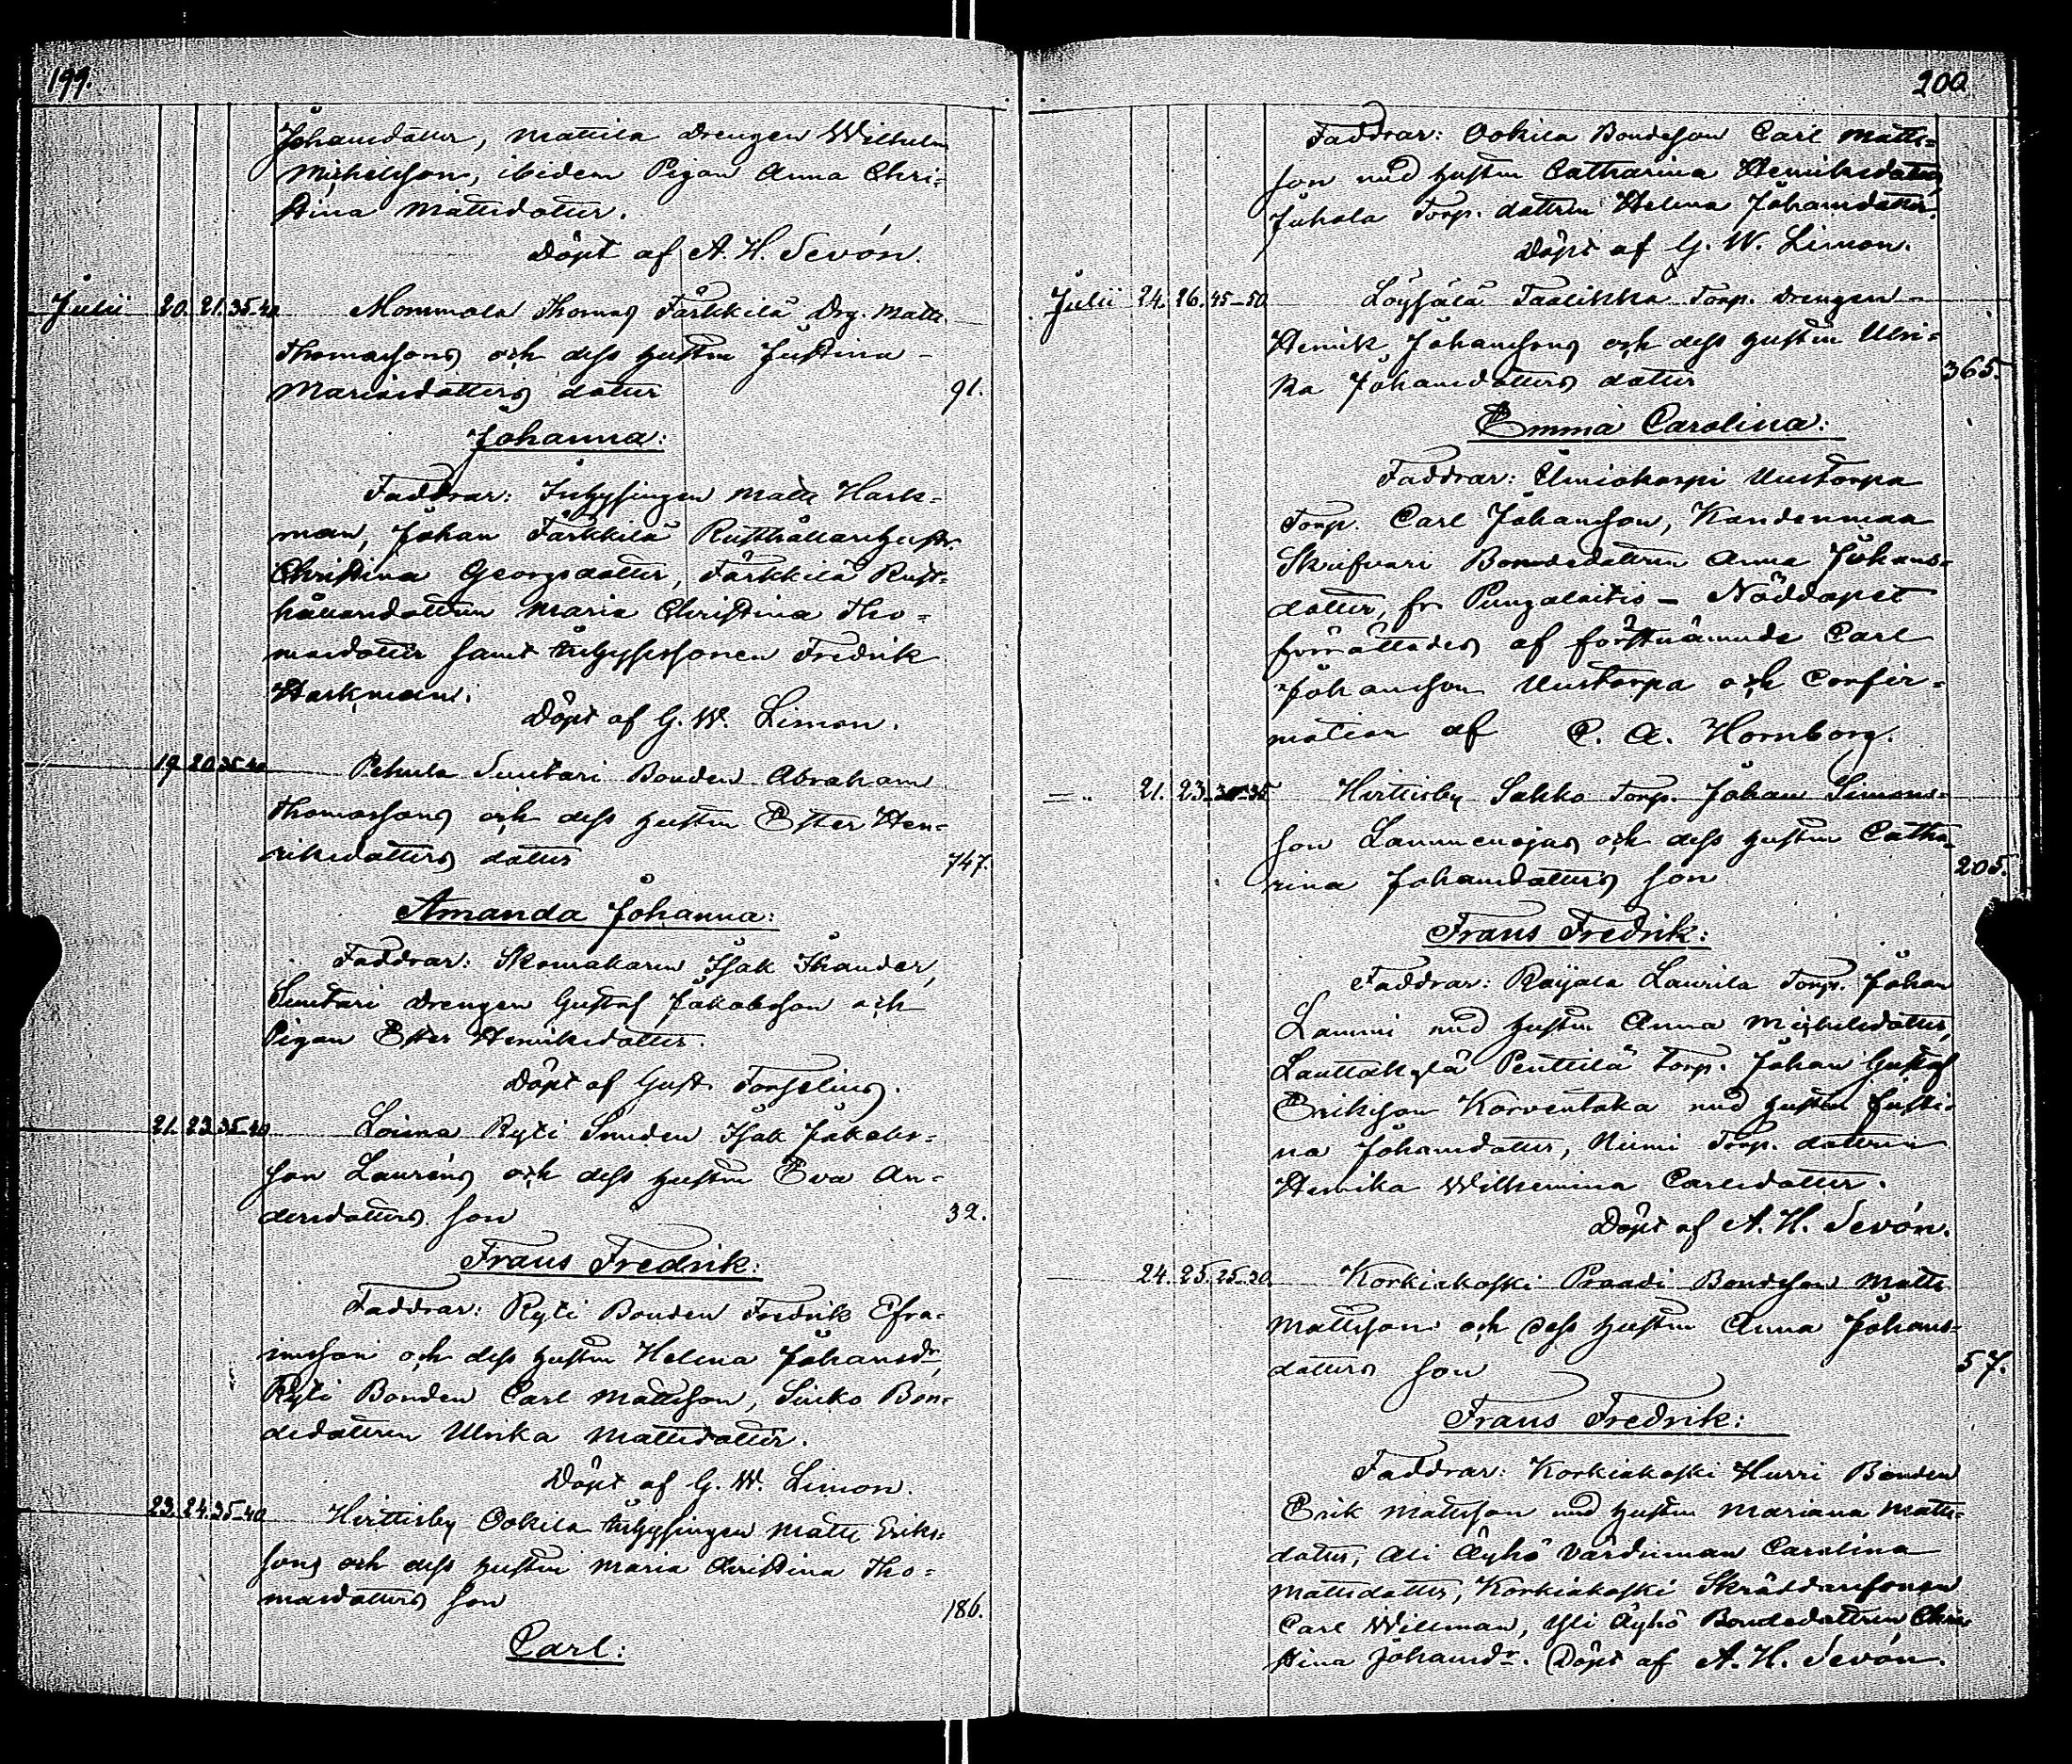 199.
Johansdotter, Mattila Drengen Wilhelm
Michelsson, ibidem Pigan Anna Chri=
stina Mattsdotter.
Döpt af A. H. Sevón.
Julii 20. 21. 35-40 Mommola Thomas Färkkilä Drg. Matts
Thomassons och dess hustru Justina
Mariasdotters dotter 91.
Johanna:
Faddrar: Inhysingen Matts Hark=
man, Johan Färkkilä Rusthållarehustr.
Christina Georgsdotter, Färkkilä Rust=
hållaredottren Maria Christina Tho=
masdotter samt Inhysessonen Fredrik
Harkman.
Döpt af G. W. Limon.
19. 20. 35-40 Pehula Suutari Bonden Abraham
Thomassons och dess hustru Ester Hen=
riksdotters dotter 747.
Amanda Johanna:
Faddrar: Skomakaren Isak Thander,
Suutari Drengen Gustaf Jakobsson och
Pigan Ester Henriksdotter.
Döpt af Gust. Forselius.
21. 23. 35-40 Loima Ryti Smeden Isak Jakobs=
son Lauréns och dess hustru Eva An=
dersdotters son 32.
Frans Fredrik:
Faddrar: Ryti Bonden Fredrik Efra=
imsson och dess hustru Helena Johansdr,
Ryti Bonden Carl Mattsson, Sinko Bon=
dedottren Ulrika Mattsdotter.
Döpt af G. W. Limon.
23. 24. 35-40 Hirttisby Ookila Inhysingen Matts Eriks=
sons och dess hustru Maria Christina Tho=
masdotters son 186.
Carl:
200
Faddrar: Ookila Bondeson Carl Matts=
son med hustru Catharina Henriksdotter,
Juhola Torp. dottren Helena Johansdotter.
Döpt af G. W. Limon.
Julii 24. 26. 45-50 Löysälä Taalikka Torp. Drengen
Henrik Johanssons och dess hustru Ulri=
ka Johansdotters dotter 365.
Emma Carolina:
Faddrar: Uustorpa
Torp. Carl Johansson, Kandenmaa
Bondedottren Anna Johans=
dotter, fr Pungalaitis — Nöddopet
förrättades af förstnämnde Carl
Johansson Uustorpa och Confir=
mation af C. A. Hornborg.
—„— 21. 23. 30-35 Hirttisby Sakko Torp. Johan Simons=
son Lammenojas och dess hustru Catha=
rina Johansdotters son 205.
Frans Fredrik:
Faddrar: Raijala Laurila Torp. Johan
Lammi med hustru Anna Michelsdotter,
Lauttakylä Penttilä Torp. Johan Gustaf
Eriksson Korventaka med hustru Justi=
na Johansdotter, Niemi Torp. dottren
Henrika Wilhemina Carlsdotter.
Döpt af A. H. Sevón.
24. 25. 25-30 Korkiakoski Praadi Bondeson Matts
Mattsson och dess hustru Anna Johans=
dotters son 57.
Frans Fredrik:
Faddrar: Korkiakoski Hurri Bonden
Erik Mattsson med hustru Mariana Matts=
dotter, Ali Äyhö Värdinnan Carolina
Mattsdotter, Korkiakoski Skräddaresonen
Carl Willman, Yli Äyhö Bondedottren Chri=
stina Johansdr. Döpt af A. H. Sevón.